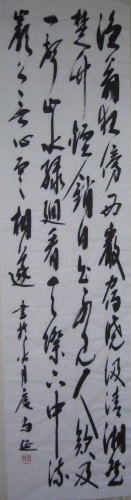 漁翁夜傍西巖宿曉汲清湘燃
楚竹煙銷日出不見人欸乃
一聲山水綠迴看天際下中流
巖上無心雲相逐